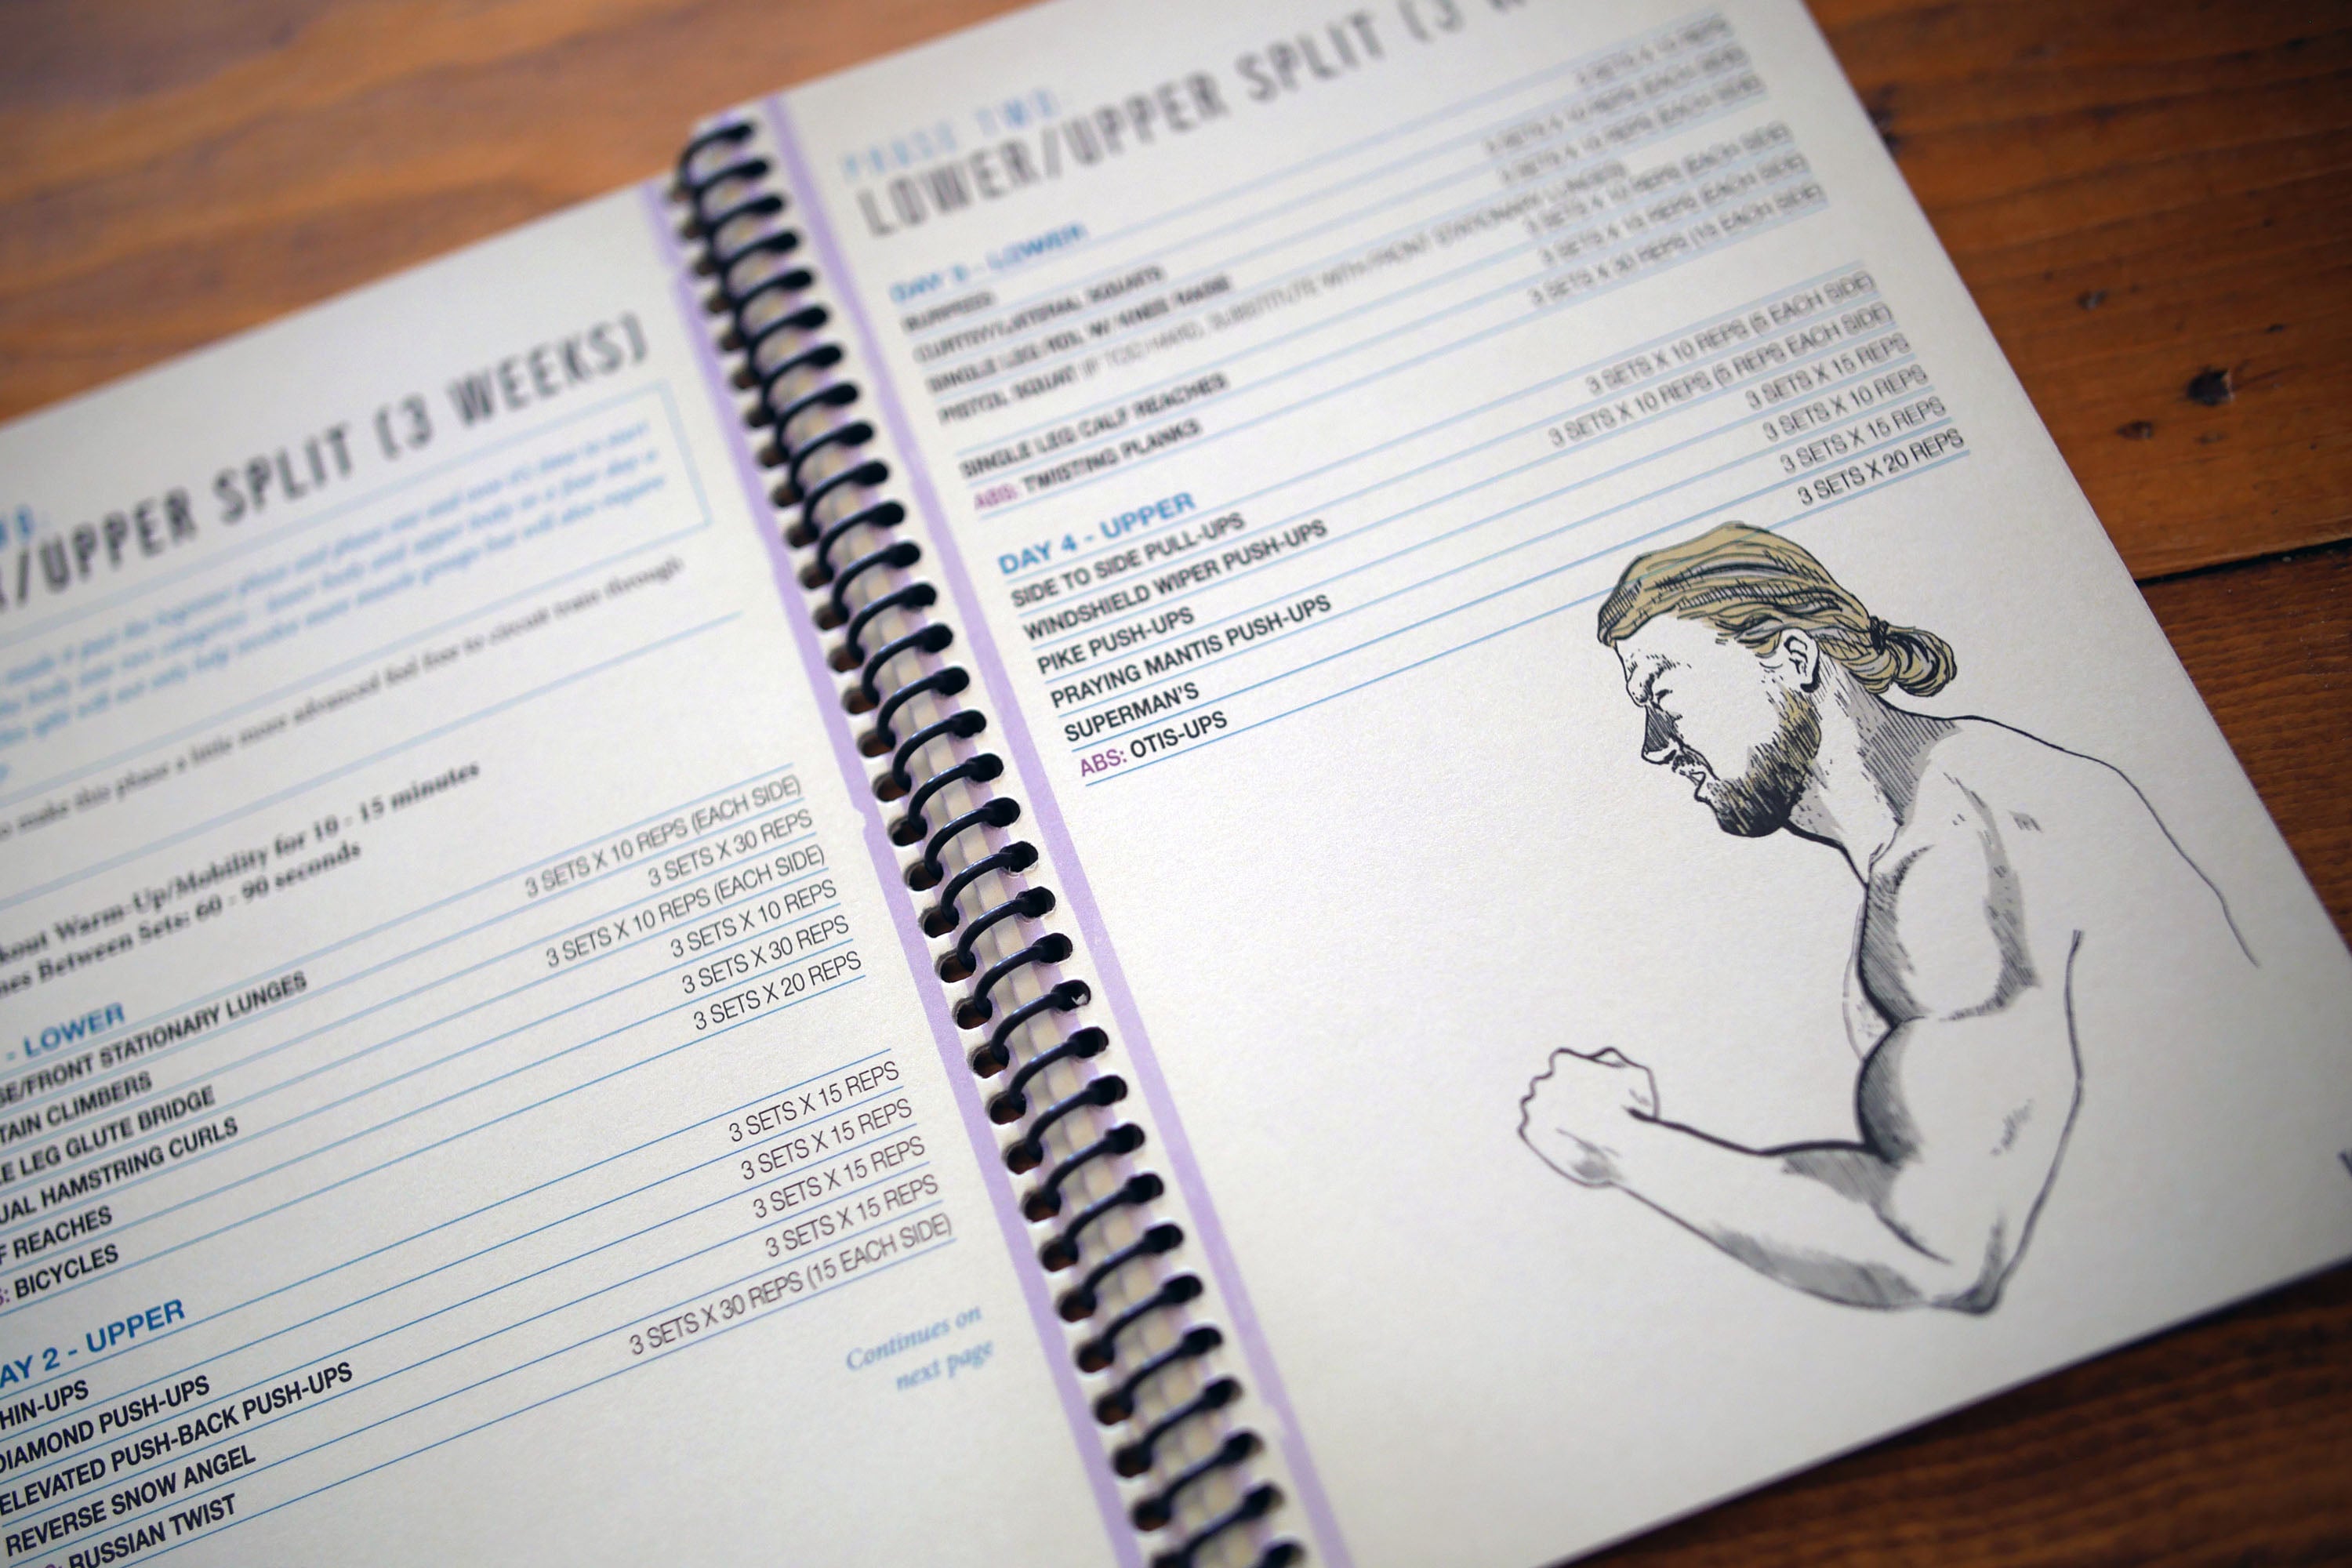 /UPPER SPLIT (3 WEEKS)
to make this phase a little more advanced feel free to circuit train through
Warm-Up/Mobility for 10 - 15 minutes
Between Sets: 60 - 90 seconds
- LOWER
/FRONT STATIONARY LUNGES 3 SETS X 10 REPS (EACH SIDE)
TAIN CLIMBERS 3 SETS X 30 REPS
LE LEG GLUTE BRIDGE 3 SETS X 10 REPS (EACH SIDE)
UAL HAMSTRING CURLS 3 SETS X 10 REPS
F REACHES 3 SETS X 30 REPS
S: BICYCLES 3 SETS X 20 REPS
AY 2 - UPPER
HIN-UPS 3 SETS X 15 REPS
DIAMOND PUSH-UPS 3 SETS X 15 REPS
ELEVATED PUSH-BACK PUSH-UPS 3 SETS X 15 REPS
REVERSE SNOW ANGEL 3 SETS X 15 REPS
RUSSIAN TWIST 3 SETS X 30 REPS (15 EACH SIDE)
Continues on
next page
PHASE TWO:
LOWER/UPPER SPLIT (3 W
DAY 3 - LOWER
BURPEES
CURTSY/LATERAL SQUATS
SINGLE LEG RDL W/ KNEE RAISE
PISTOL SQUAT (IF TOO HARD, SUBSTITUTE WITH FRONT STATIONARY LUNGES) 3 SETS X 10 REPS (EACH SIDE)
SINGLE LEG CALF REACHES 3 SETS X 15 REPS (EACH SIDE)
ABS: TWISTING PLANKS 3 SETS X 30 REPS (15 EACH SIDE)
DAY 4 - UPPER
SIDE TO SIDE PULL-UPS 3 SETS X 10 REPS (5 EACH SIDE)
WINDSHIELD WIPER PUSH-UPS 3 SETS X 10 REPS (5 REPS EACH SIDE)
PIKE PUSH-UPS 3 SETS X 15 REPS
PRAYING MANTIS PUSH-UPS 3 SETS X 10 REPS
SUPERMAN'S 3 SETS X 15 REPS
ABS: OTIS-UPS 3 SETS X 20 REPS